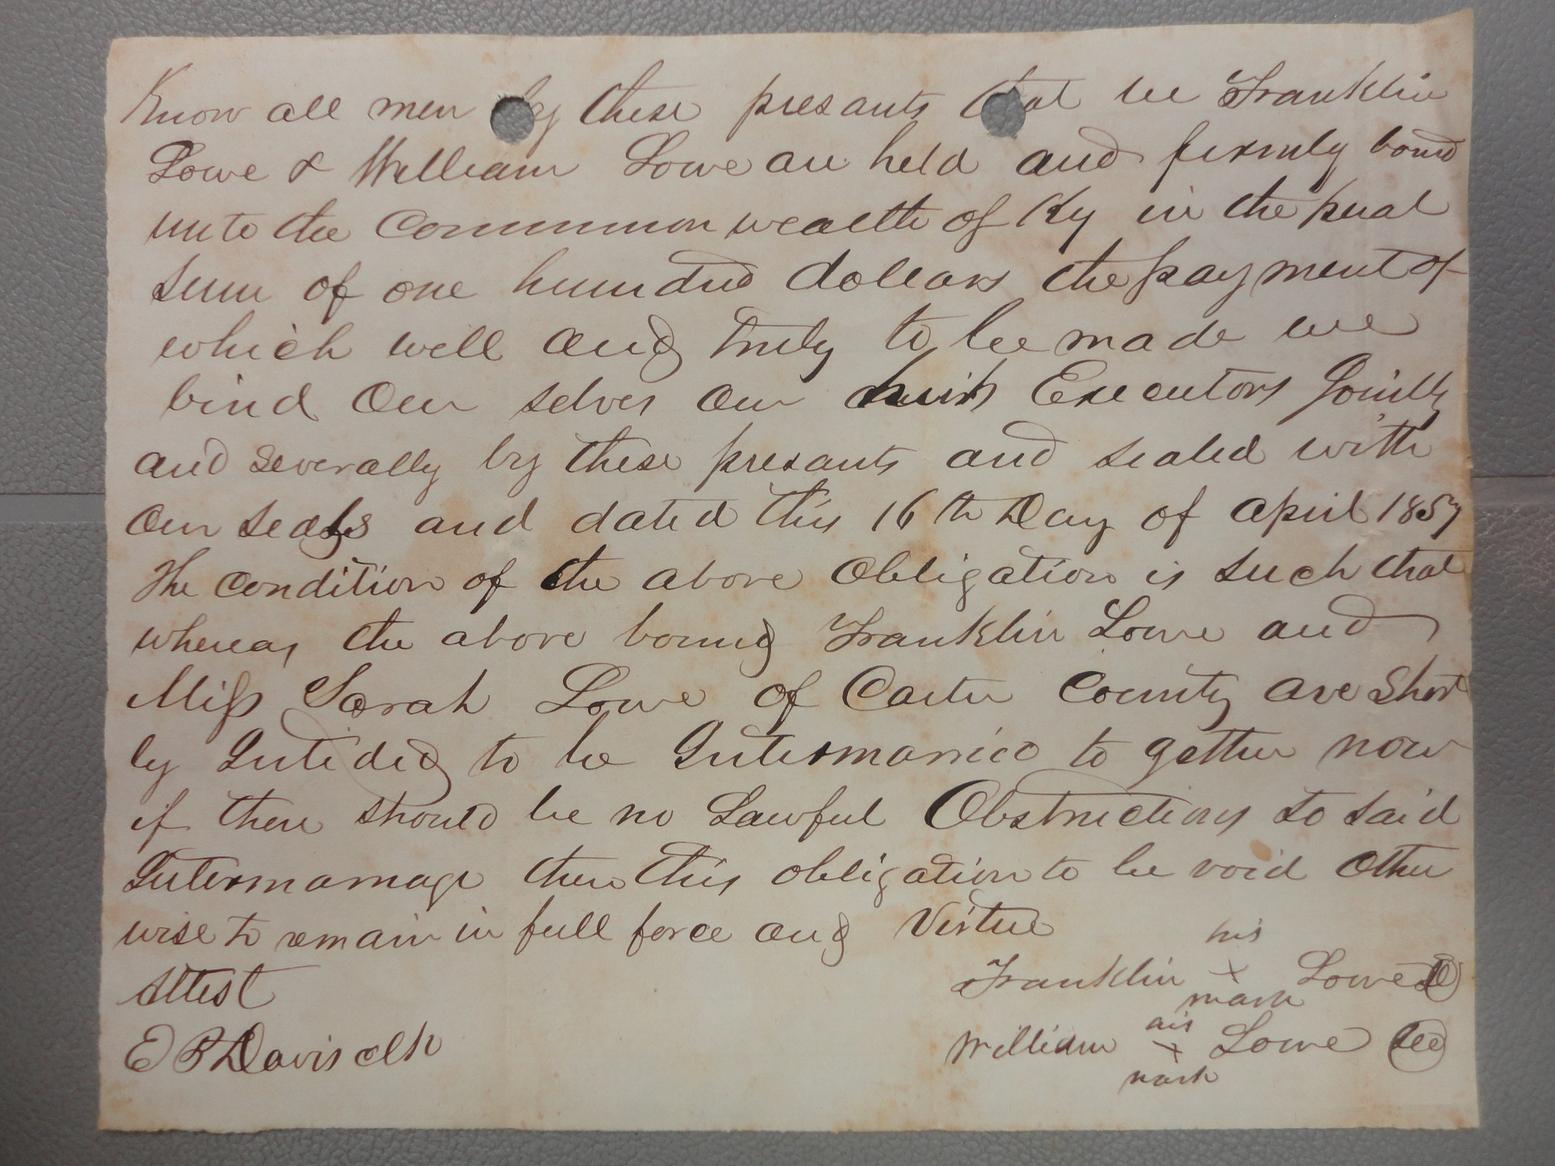 Know all men by these presants that we Franklin
Lowe & William Lowe are held and firmly bound
unto the Commonwealth of Ky in the penal
sum of one hundred dollars the payment of
which well and truly to be made we
bind Our selves Our heirs Executors Jointly
and severally by these presants and sealed with
Our seals and dated this 16th Day of April 1857
The condition of the above Obligation is such that
whereas the above bound Franklin Lowe and
Miss Sarah Lowe of Carter County are Short
ly Intided to be Intermarried to gether now
if there should be no Lawful Obstructions to said
Intermarriage then this obligation to be void Other
wise to remain in full force and Virtue
his
Attest Franklin x Lowe
mark
his
E B Davis clk William x Lowe See
mark